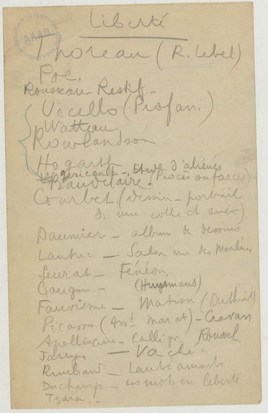 Liberté
Thoreau (R. Lebel)
Poe.
Rousseau - Restif -
Uccello (Profan.)
Watteau
Rowlandson
Hogarth
Géricault - Etude d'aliénés
Baudelaire (Procès
Courbet (dessin - portrait
de une collect
Daumier - album de dessins
Lautrec - Salon rue des Moulins
Seurat - Fénéon
Gauguin - (Huysmans)
Fauvisme - Matisse (Duthuit)
Picasso - Cravan
Apollinaire - Calligr. Roussel
Jarry - Vaché
Rimbaud - Lautréamont
Duchamp - en liberté
Tzara